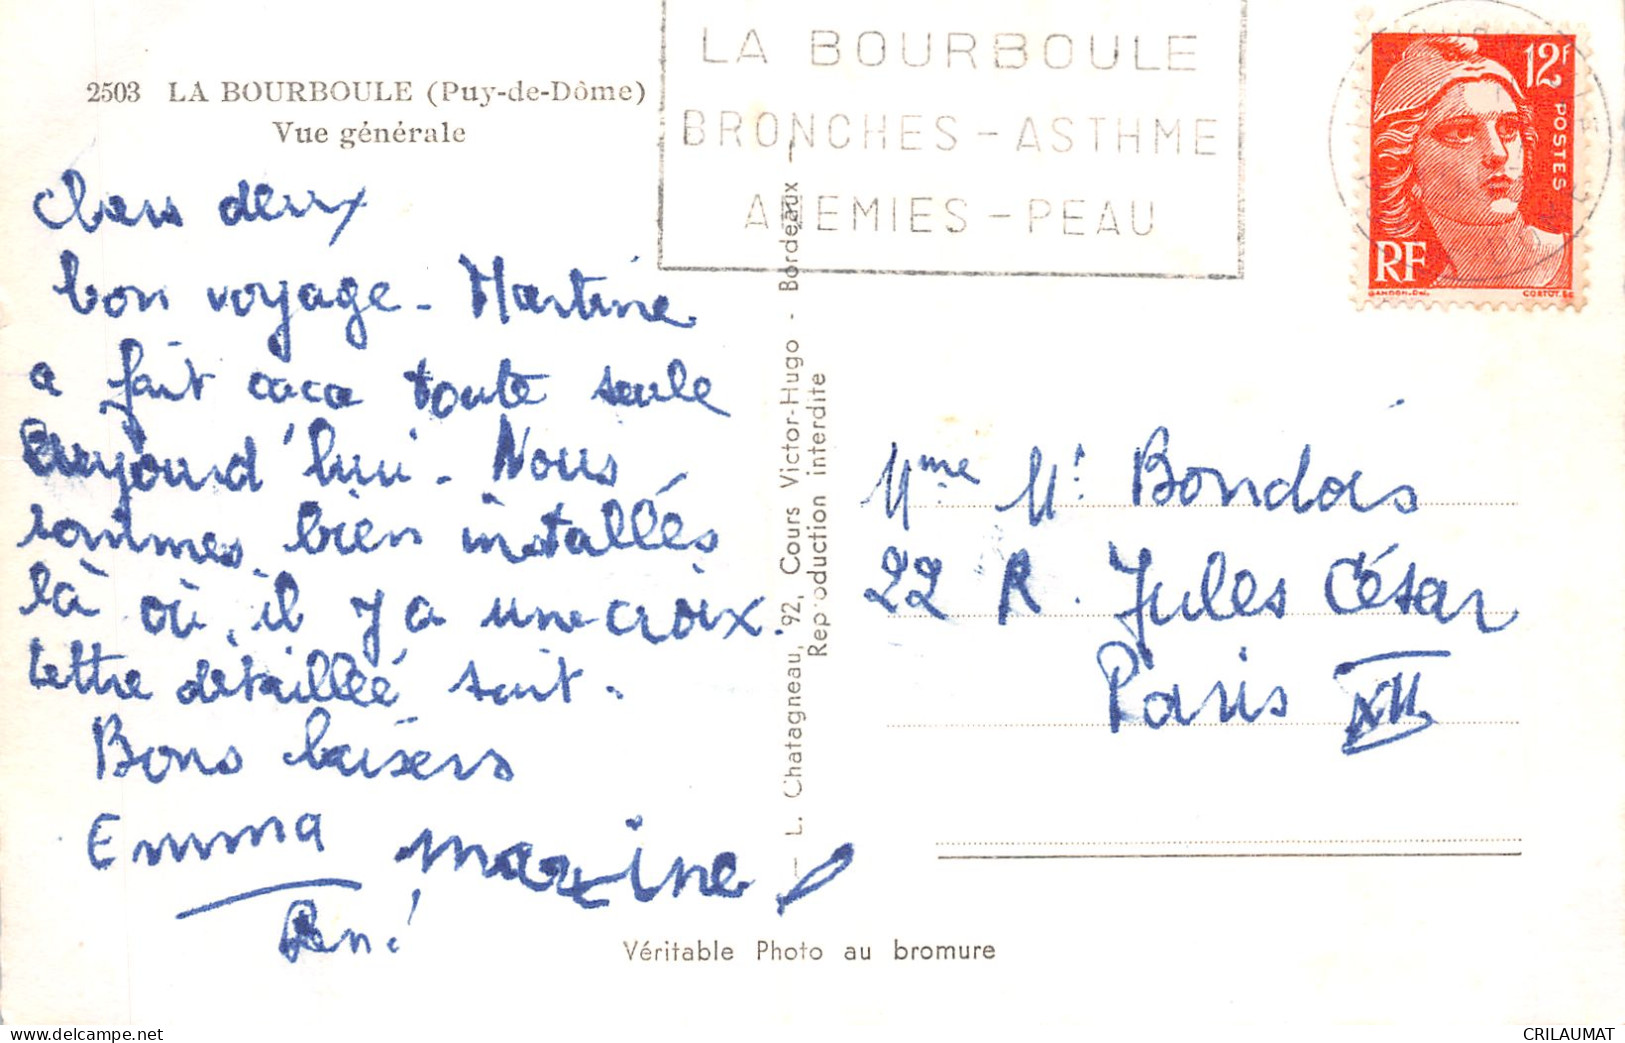 2503 LA BOURBOULE (Puy-de-Dôme)
Vue générale
LA BOURBOULE
BRONCHES - ASTHME
ANEMIES - PEAU
12F
POSTES
RF
GANDON.DEL.
CORTOT.SC
Chers deux
bon voyage - Martine
a fait caca toute seule
aujourd'hui - Nous
sommes bien installés
là où il y a une croix.
Lettre détaillée suit.
Bons baisers
Emma Martine
René
L. Chatagneau, 92, Cours Victor-Hugo - Bordeaux
Reproduction interdite
Mme Mr Bondois
22 R. Jules César
Paris XII
Véritable Photo au bromure
www.delcampe.net
CRILAUMAT